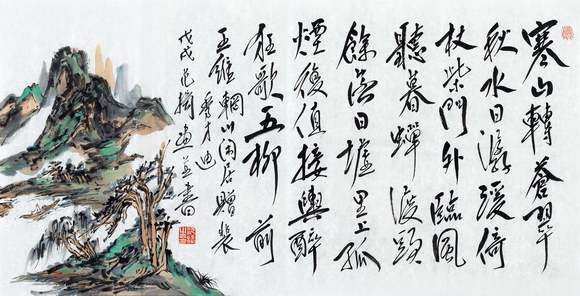 寒山轉蒼翠
秋水日潺湲倚
杖柴門外臨風
聽暮蟬渡頭
餘落日墟里上孤
煙復值接輿醉
狂歌五柳前
王維輞川閑居贈裴
秀才迪
戊戌 畫並書